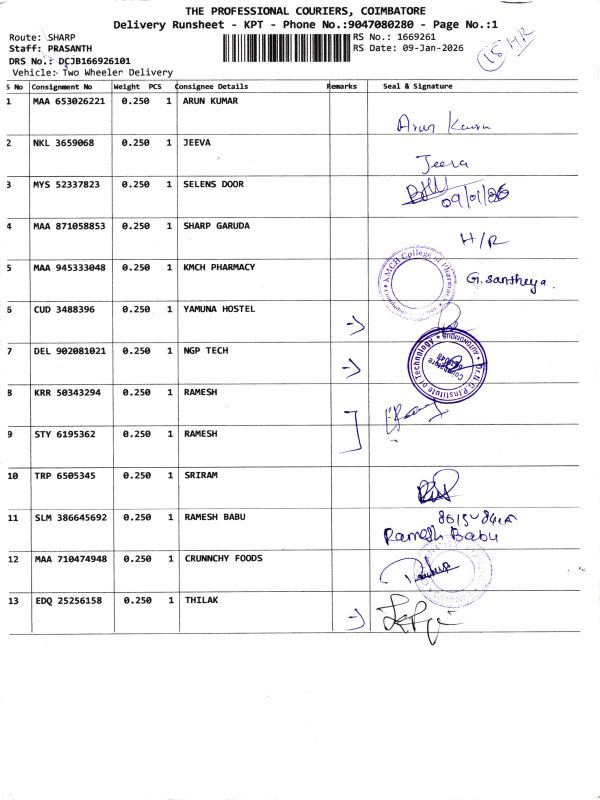 THE PROFESSIONAL COURIERS, COIMBATORE
Delivery Runsheet - KPT - Phone No.:9047080280 - Page No.:1
Route: SHARP
Staff: PRASANTH
DRS No.: DCJB166926101
Vehicle: Two Wheeler Delivery
RS No.: 1669261
RS Date: 09-Jan-2026
15 HR
S No Consignment No Weight PCS Consignee Details Remarks Seal & Signature
1 MAA 653026221 0.250 1 ARUN KUMAR
Arun Kumar
2 NKL 3659068 0.250 1 JEEVA
Jeeva
3 MYS 52337823 0.250 1 SELENS DOOR
09/01/26
4 MAA 871058853 0.250 1 SHARP GARUDA
H/R
5 MAA 945333048 0.250 1 KMCH PHARMACY
KMCH College of Pharmacy
G. Santheya.
6 CUD 3488396 0.250 1 YAMUNA HOSTEL
7 DEL 902081021 0.250 1 NGP TECH
Dr. N.G.P Institute of Technology
AUTONOMOUS
Coimbatore
8 KRR 50343294 0.250 1 RAMESH
9 STY 6195362 0.250 1 RAMESH
10 TRP 6505345 0.250 1 SRIRAM
11 SLM 386645692 0.250 1 RAMESH BABU
Ramesh Babu
12 MAA 710474948 0.250 1 CRUNNCHY FOODS
13 EDQ 25256158 0.250 1 THILAK